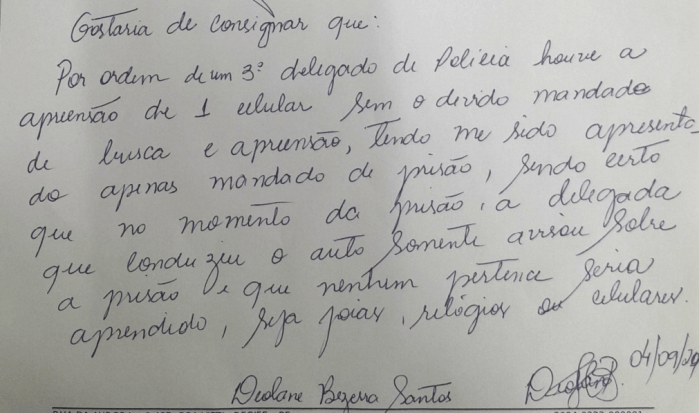 Gostaria de consignar que:
Por ordem de um 3º delegado de Polícia houve a
apreensão de 1 celular sem o devido mandado
de busca e apreensão, tendo me sido apresenta-
do apenas mandado de prisão, sendo certo
que no momento da prisão, a delegada
que conduziu o auto somente avisou sobre
a prisão e que nenhum pertence seria
aprendido, seja joias, relógios ou celulares.
04/09/20
Deolane Bezerra Santos